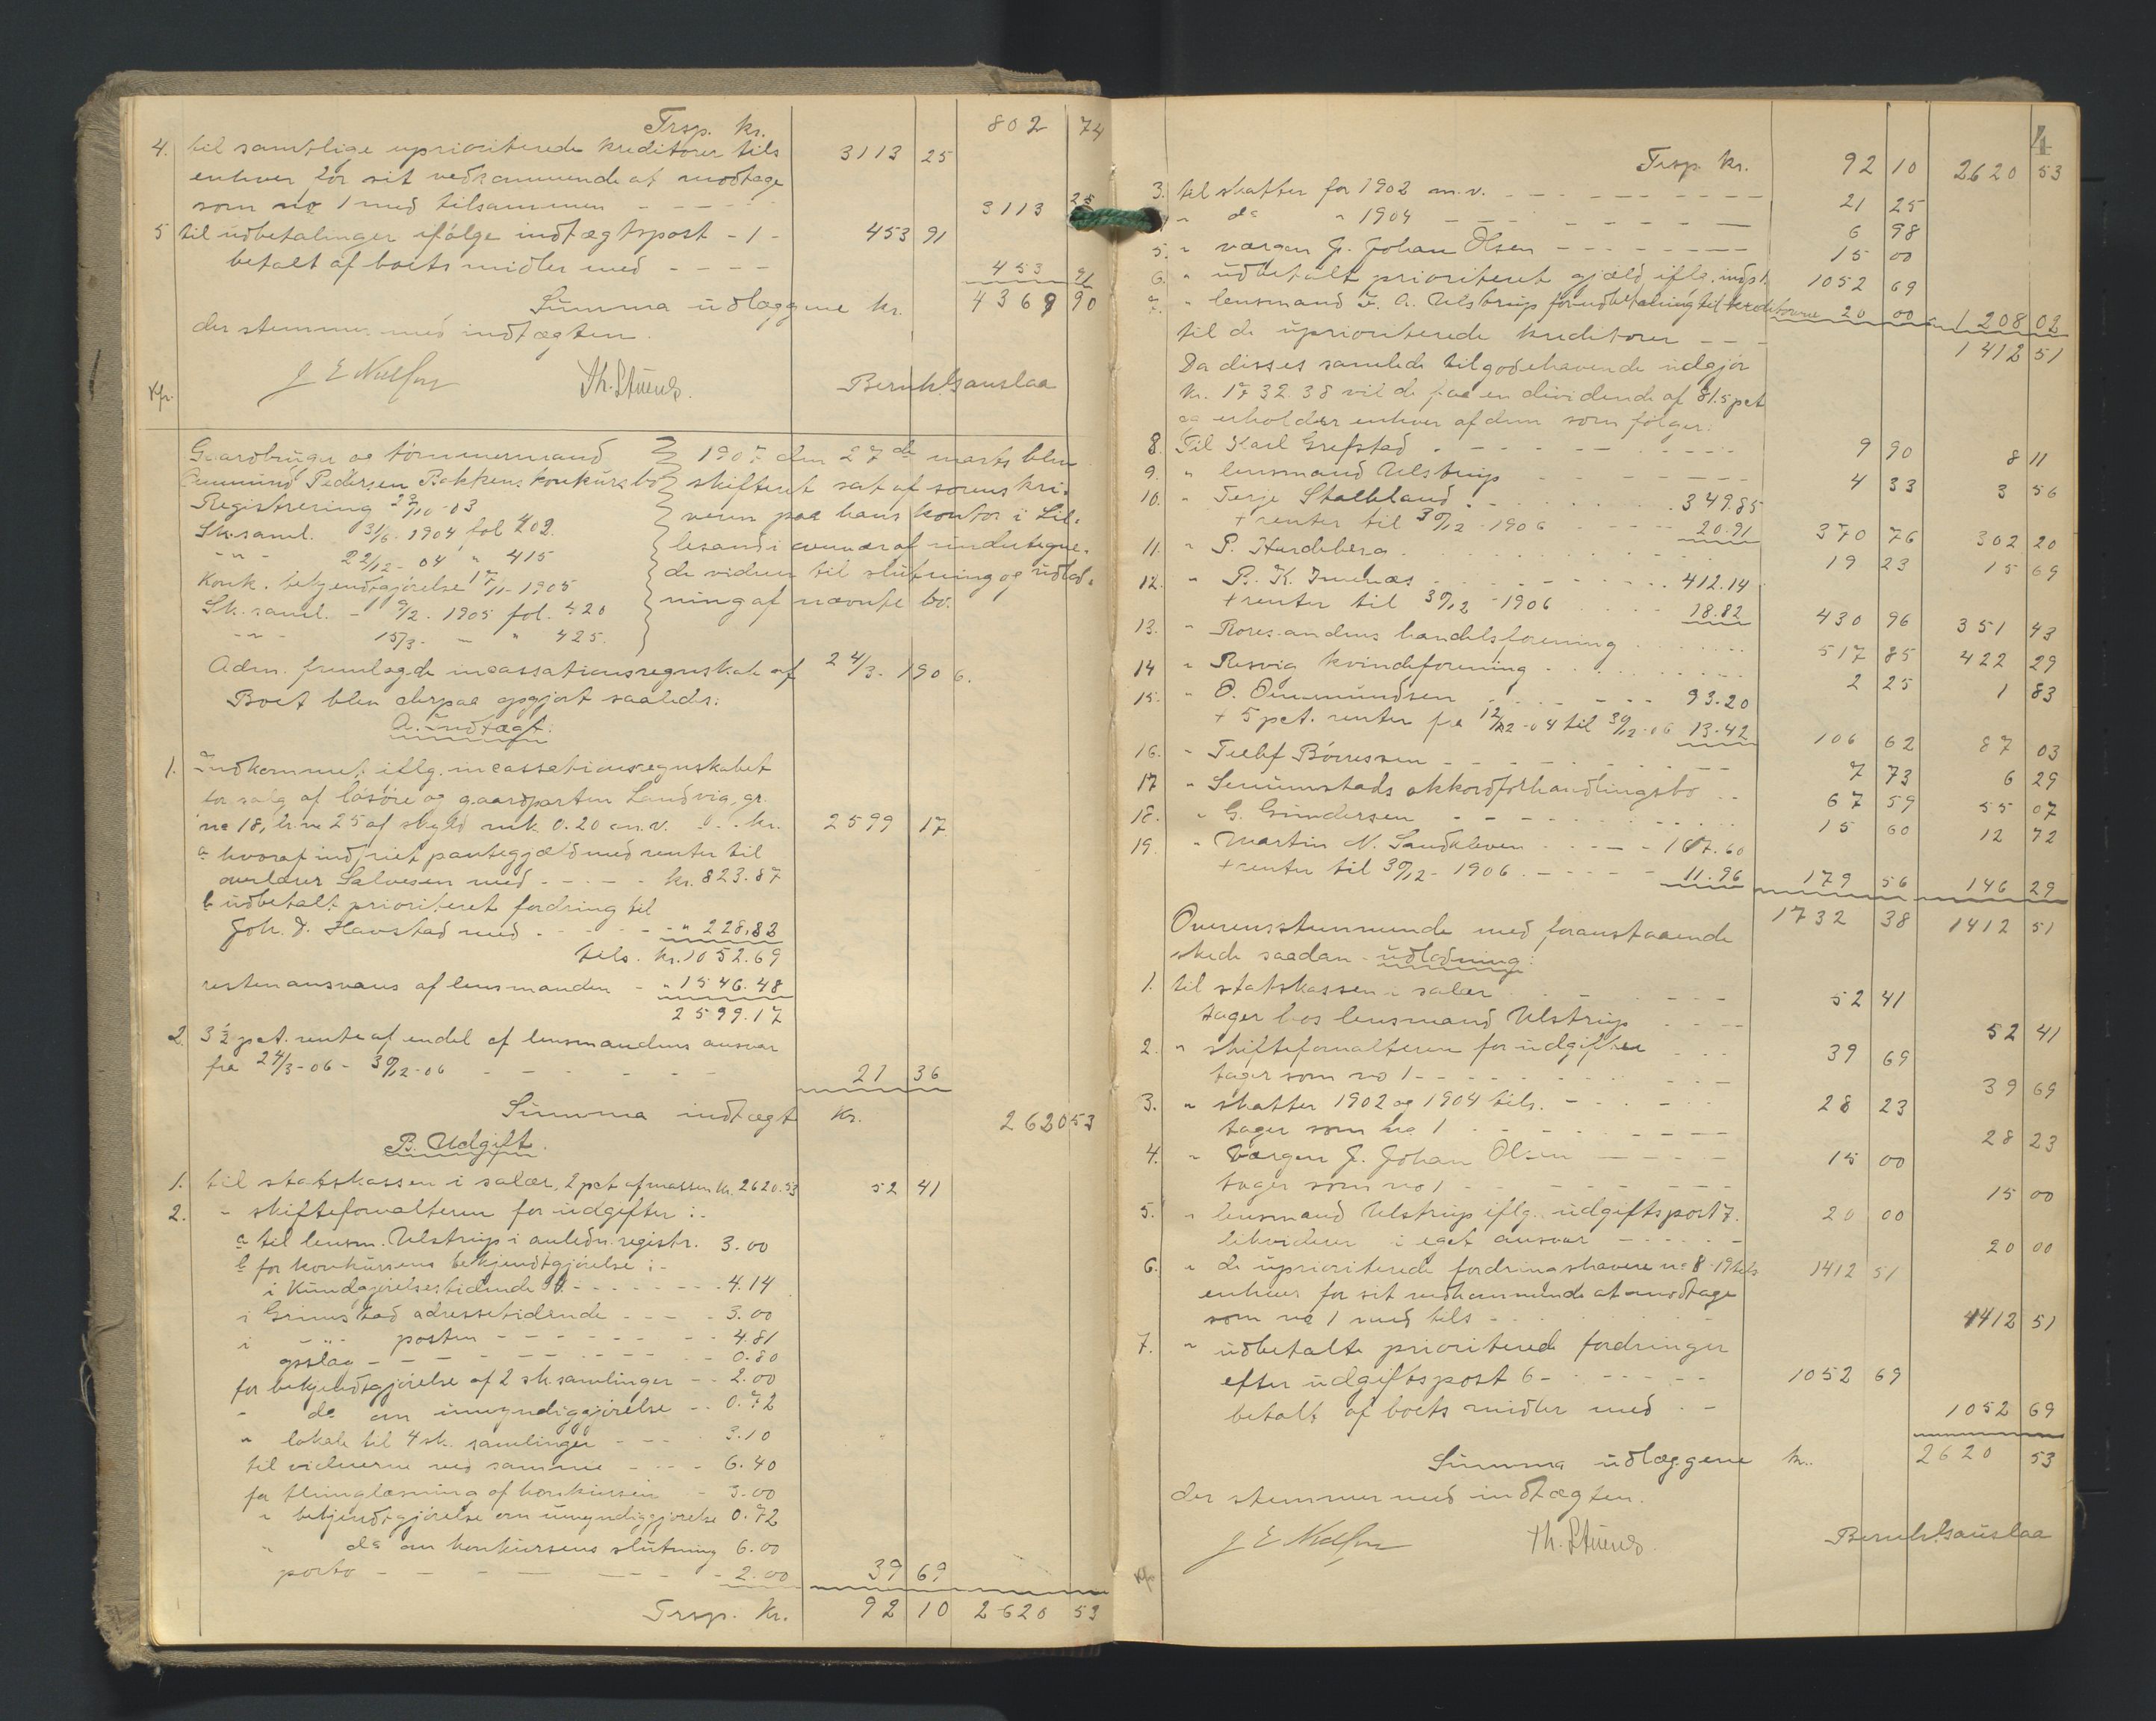 Trsp. kr. 802 74
4. til samtlige uprioriterede kreditorer tils 3113 25
enhver for sit vedkommende at modtage
som no 1 med tilsammen - - - - 3113 25
5 til udbetalinger ifølge indtægtspost - 1 - 453 91
betalt af boets midler med - - - - 453 91
Summa udlæggene kr. 4369 90
der stemmer med indtægten.
Th. Stuens. Bernh. Isauslaa
Gaardbruger og tømmermand
Ommund Pedersen Bakkens konkursbo
Registrering 29/10-03
Sk. saml. 31/6. 1904 fol 409.
- " - 22/12 - 04 " 415
Konk. bekjendtgjørelse 17/1-1905
Sk. saml. - 9/2. 1905 fol. 420
- " - 15/3 - - " 425.
1907 den 27de marts blev
skifteret sat af sorenskri-
veren paa hans kontor i Lil-
lesand i overvær af undertegne-
de vidner til slutning og udlod-
ning af nævnte bo.
Adm. fremlagde incassationsregnskab af 24/3. 1906.
Boet blev derpaa opgjort saaledes:
A. Indtægt.
1. Indkommet iflg. incassationsregnskabet
for salg af løsøre og gaardparten Landvig, gr.
no 18, br. no 25 af skyld mk. 0.20 m.v. . . . kr. 2599 17
a hvoraf indfriet pantegjæld med renter til
overlærer Salvesen med - - - - kr. 823.87
b udbetalt prioriteret fordring til
Joh. D. Havstad med - - - - " 228,82
tils. kr. 1052.69
resten ansvares af lensmanden - " 1546.48
2599.17
2. 3½ pct. rente af endel af lensmandens ansvar
fra 24/3-06 - 30/12-06 - - - - - - 21 36
Summa indtægt kr. 2620 53
B. Udgift.
1. til statskassen i salær, 2 pct af massen kr. 2620.53 52 41
2. " skifteforvalteren for udgifter :-
a til lensm. Ulstrup i anledn. registr. 3.00
b for konkursens bekjendtgjørelse :-
i Kundgjørelsestidende - - - - 4.14
i Grimstad adressetidende - - - - 3.00
i - " - posten - - - - - - 4.81
opslag - - - - - - - - - 0.80
for bekjendtgjørelse af 2 sk. samlinger - - 2.00
" do om umyndiggjørelse - . 0.72
" lokale til 4 sk. samlinger - - - 3.10
til vidnerne ved samme - - - - 6.40
for thinglæsning af konkursen - 3.00
" bekjendtgjørelse om umyndiggjørelse 0.72
" do om konkursens slutning 6.00
porto - - - - - - - - 2.00 39 69
Trsp. kr. 92 10 2620 53
4
Trsp. kr. 92 10 2620 53
3. til skatter for 1902 m.v. - - - - - - 21 25
" do " 1904 - - - - - - 6 98
5. " værgen J. Johan Olsen - - - - - - 15 00
6. " udbetalt prioriteret gjæld iflg. indp. 1 1052 69
7. " lensmand F. A. Ulstrup for udbetaling til kreditorerne 20 00 1208 02
til de uprioriterede kreditorer - - - 1412 51
Da disses samlede tilgodehavende udgjør
kr. 1732.38 vil de faa en dividende af 81.5 pct
og erholder enhver af dem som følger:
8. Til Karl Grefstad . - - - - - - 9 90 8 11
9. " lensmand Ulstrup - - - - - - 4 33 3 56
10. " Terje Stalleland . . . . . . 349.85
+ renter til 30/12 - 1906 - - - - 20.91 370 76 302 20
11. " P. Hardeberg . . . . . . . 19 23 15 69
12. " P. K. . . . . . . . 412.14
+ renter til 30/12 - 1906 . . . . 18.82 430 96 351 43
13. " handelsforening . . . . 517 85 422 29
14 " Resvig kvindeforening . . . . . . 2 25 1 83
15. " O. Ommundsen . - . - . - . 93.20
+ 5 pct. renter fra 12/12-04 til 30/12-06 13.42 106 62 87 03
16. " Tellef Børressen - - - - - - 7 73 6 29
17 " akkordforhandlingsbo . . 67 59 55 07
18. " G. Gundersen - - - - . . . . 15 60 12 72
19. " Martin N. Sandkleven . . . - - 167.60
+ renter til 30/12 - 1906 . - - - - 11.96 179 56 146 29
1732 38 1412 51
Overensstemmende med foranstaaende
skede saadan udlodning:
1. til statskassen i salær . . - - - - 52 41
tager hos lensmand Ulstrup . . . - - 52 41
2. " skifteforvalteren for udgifter . . . 39 69
tager som no 1 - - - - - - - 39 69
3. " skatter 1902 og 1904 tils. - - - - - 28 23
tager som no 1 . - . - - - - - 28 23
4. " værgen J. Johan Olsen - - - - - 15 00
tager som no 1 - - - - - - - 15 00
5. " lensmand Ulstrup iflg. udgiftspost 7. 20 00
likviderer i eget ansvar - - - - - 20 00
6. " de uprioriterede fordringshavere no 8-19 tils 1412 51
enhver for sit vedkommende at modtage
som no 1 med tils - . . . . . - 1412 51
7. " udbetalte prioriterede fordringer
efter udgiftspost 6 - . - - - - 1052 69
betalt af boets midler med . - 1052 69
Summa udlæggene kr. 2620 53
der stemmer med indtægten.
Th. Stuens. Bernh. Isauslaa